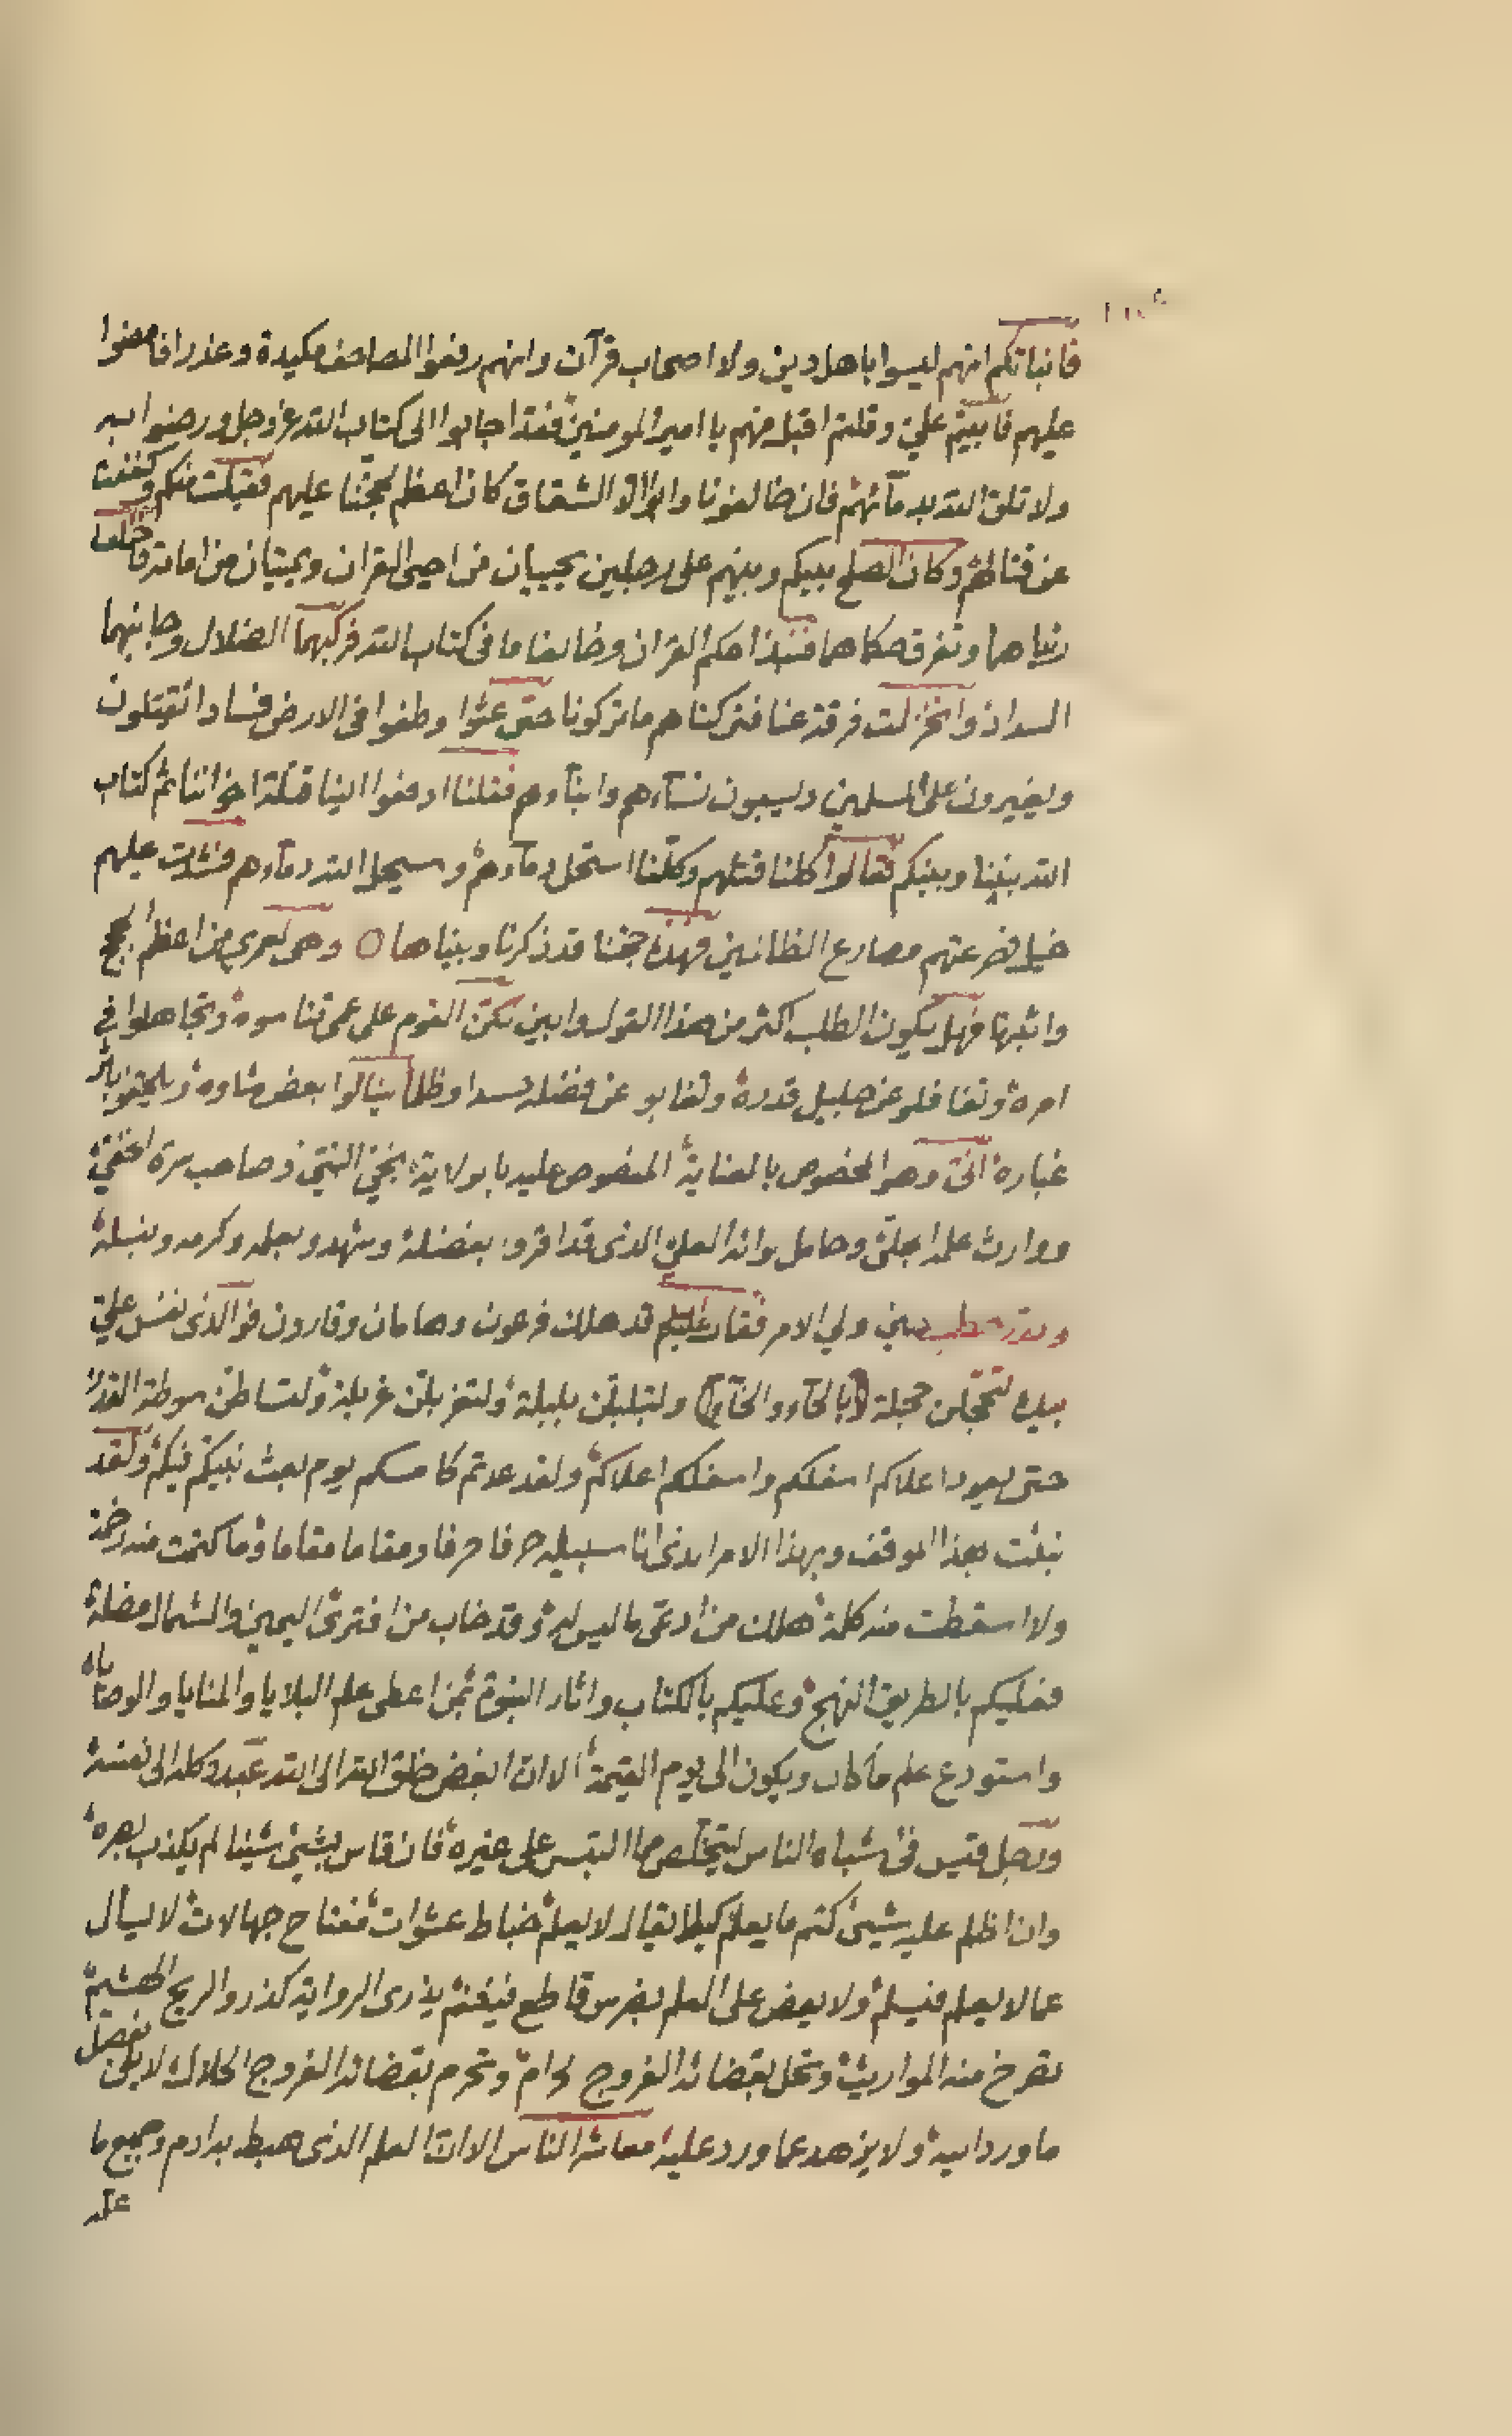 فانباتكم انهم ليسوا باهل دين ولا اصحاب قرآن وانهم رفعوا المصاحف مكيدة وغدرا فامضوا
عليهم فابيتم عليّ وقلتم اقبل منهم يا امير المومنين فقد اجابوا الى كتاب الله عزوجل ورضوا به
ولا تلق الله بدمآئهم فان خالفونا وابوا الا الشقاق كان اعظم لحجتنا عليهم فقبلت منكم وكففت
عن قتالهم وكان الصلح بينكم وبينهم على رجلين يحييان من احيى القران ويميتان من اماته فاختلفا
رئياهما وتفرق حكماهما فنبذا حكم القران وخالفا ما في كتاب الله فركبهما الضلال وجانبهما
السداد وانخزلت فرقة عنا فتركناهم ما تركونا حتى عثوا وطغوا في الارض فسادا يقتلون
ويغيرون على المسلمين ويسبون نسآءهم وابنآءهم فقلنا ادفعوا الينا قتلة اخواننا ثم كتاب
الله بيننا وبينكم فقالوا كلنا قتلهم وكلّنا استحل دمآءهم وسيحل الله دمآءهم فشدت عليهم
خيل فصرعتهم مصارع الظالمين فهذه حجتنا قد ذكرنا وبيناها وهي لعمري من اعظم الحجج
واثبرها فهل يكون الطلب اكثر من هذا القول وابين لكن القوم على عمى تناسوه وتجاهلوا في
امره وتغافلو عن جليل قدره وتغابو عن فضله حسدا وظلما ينالوا بعض شاوه ويلحقوا باثر
غباره انى وهو المخصوص بالعناية المنصوص عليه بالولاية نجيّ النبيّ وصاحب سره الخفيّ
ووارث علمه الجليّ وحامل وانه العلي الذي قد اقروا بفضله وشهدو بعلمه وكرمه ونبله
وقد خطب حين ولي الامر فقال عليكم قد هلك فرعون وهامان وقارون فوالذي نفس عليّ
بيده لتحجّلن حجلة (بالحآء والخآء) ولتبلبلّن بلبلة ولتغربلّن غربلة ولتساطن سوطة القدر
حتى يعود اعلاكم اسفلكم واسفلكم اعلاكم ولقد عدتم كامسكم يوم بعث نبيكم فيكم ولقد
نبئت بهذا الموقف وبهذا الامر الذي انا سبيله حرفا حرفا ومقاما مقاما وما كتمت منه رخمة
ولا اسقطت منه كلمة هلك من ادعى ما ليس له وقد خاب من افترى اليمين والشمال مضلة
فعليكم بالطريق النهج وعليكم بالكتاب واثار النبوة ثمن اعطى علم البلايا والمنايا والوصاياه
واستودع علم ما كان ويكون الى يوم القيمة الا ان ابغض خلق الله الى الله عبد وكله الى نفسه
ورجل قمس في اشباه الناس ليتخلّص ما التبس على غيره فان قاس بشيئ شيئا لم يكذب بصره
وان اظلم عليه شيئ كتم ما يعلم كيلا يقال لا يعلم خباط عشوات مفتاح جهالات لا يسأل
عما لا يعلم فيسلم ولا يعض على العلم بضرس قاطع فيغنم يذرى الرواية كذرو الريح الهشيم
تصرخ منه المواريث وتحل بقضائه الفروج لحرام وتحرم بقضائه الفروج الحلال لا يلى بفصل
ما ورد اليه ولا يزهد عما ورد عليه معاشر الناس الا ان العلم الذي هبط به ادم وجميع ما